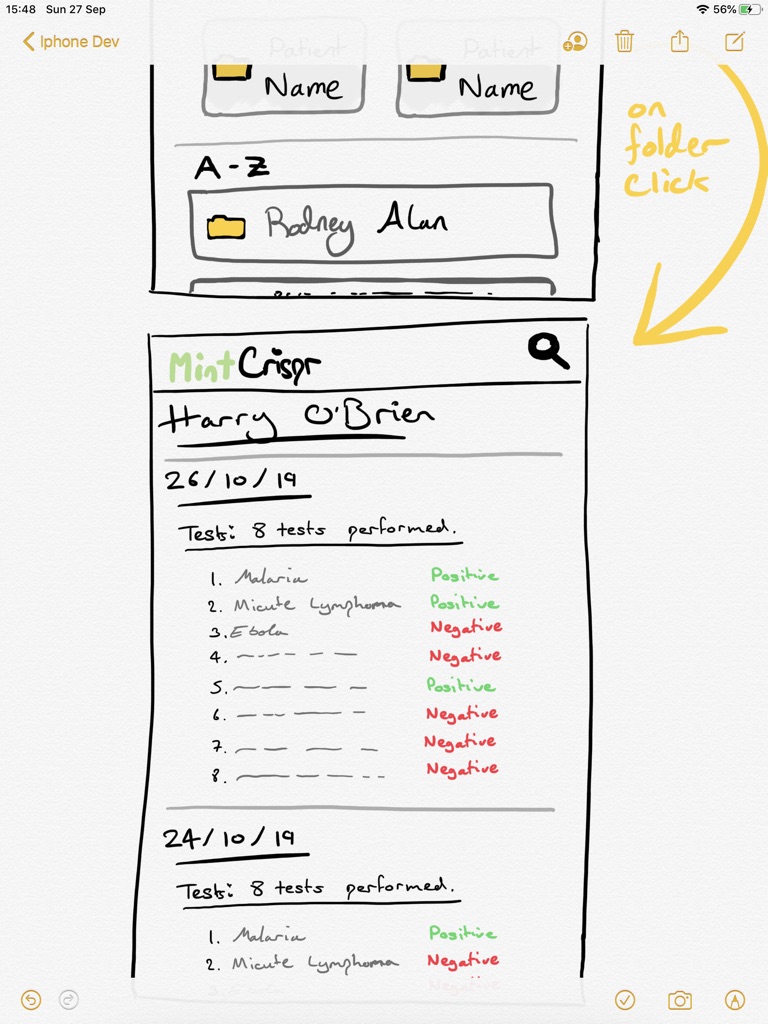 15:48 Sun 27 Sep
56%
Iphone Dev
Patient Patient
Name Name
on
folder
click
A-Z
Rodney Alan
MintCrispr
Harry O'Brien
26/10/19
Tests: 8 tests performed.
1. Malaria Positive
2. Micute Lymphoma Positive
3. Ebola Negative
4. Negative
5. Positive
6. Negative
7. Negative
8. Negative
24/10/19
Tests: 8 tests performed.
1. Malaria Positive
2. Micute Lymphoma Negative
3. Ebola Negative